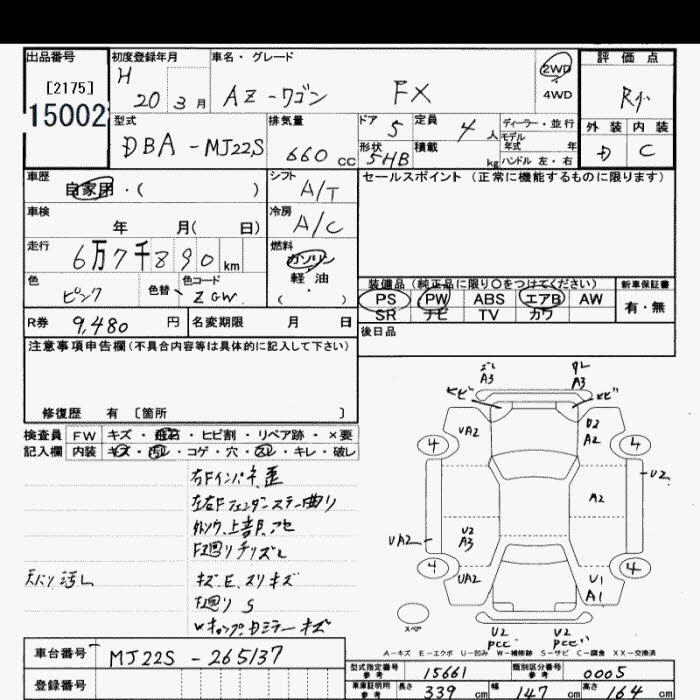 出品番号
[2175]
15002
初度登録年月
H 20 3 月
車名・グレード
AZ-ワゴン FX
2WD
4WD
評価点
R小
外装 内装
D C
型式
DBA-MJ22S
排気量
660 CC
ドア 5
形状 5HB
定員 4 人
積載 kg
ディーラー・並行
モデル年式 年
ハンドル 左・右
車歴
自家用・( )
シフト
A/T
セールスポイント(正常に機能するものに限ります)
車検
年 月( 日)
冷房
A/C
走行
6万7千890 km
燃料
ガソリン
軽油
・
( )
色
ピンク
色替
色コード
ZGW
装備品(純正品に限り○をつけてください)
PS PW ABS エアB AW
SR ナビ TV カワ
新車保証書
有・無
R券 9,480 円
名変期限 月 日
後日品
注意事項申告欄(不具合内容等は具体的に記入して下さい)
修復歴 有 〔箇所 〕
検査員 FW キズ・飛石・ヒビ割・リペア跡・×要
記入欄 内装 キズ・汚レ・コゲ・穴・スレ・キレ・破レ
右Fインパネ歪
左右Fフェンダーステー曲り
F廻りチリズレ
天バリ汚レ
キズ、E、スリキズ
F廻り S
ズレ A3
ズレ A3
ヒビ
ヒビ
UA2
U2 A2
4
4
U2
A2
UA2
U2 A3
4
4
UA2
U1 A1
スペア
U2 PCC
U2 ヒビ PCC
A-キズ E-エクボ U-凹み W-補修跡 S-サビ C-腐食 XX-交換済
車台番号
MJ22S-265137
型式指定番号 参考 15661
類別区分番号 参考 0005
登録番号
車庫証明用 参考 長さ 339 cm 幅 147 cm 高さ 164 cm